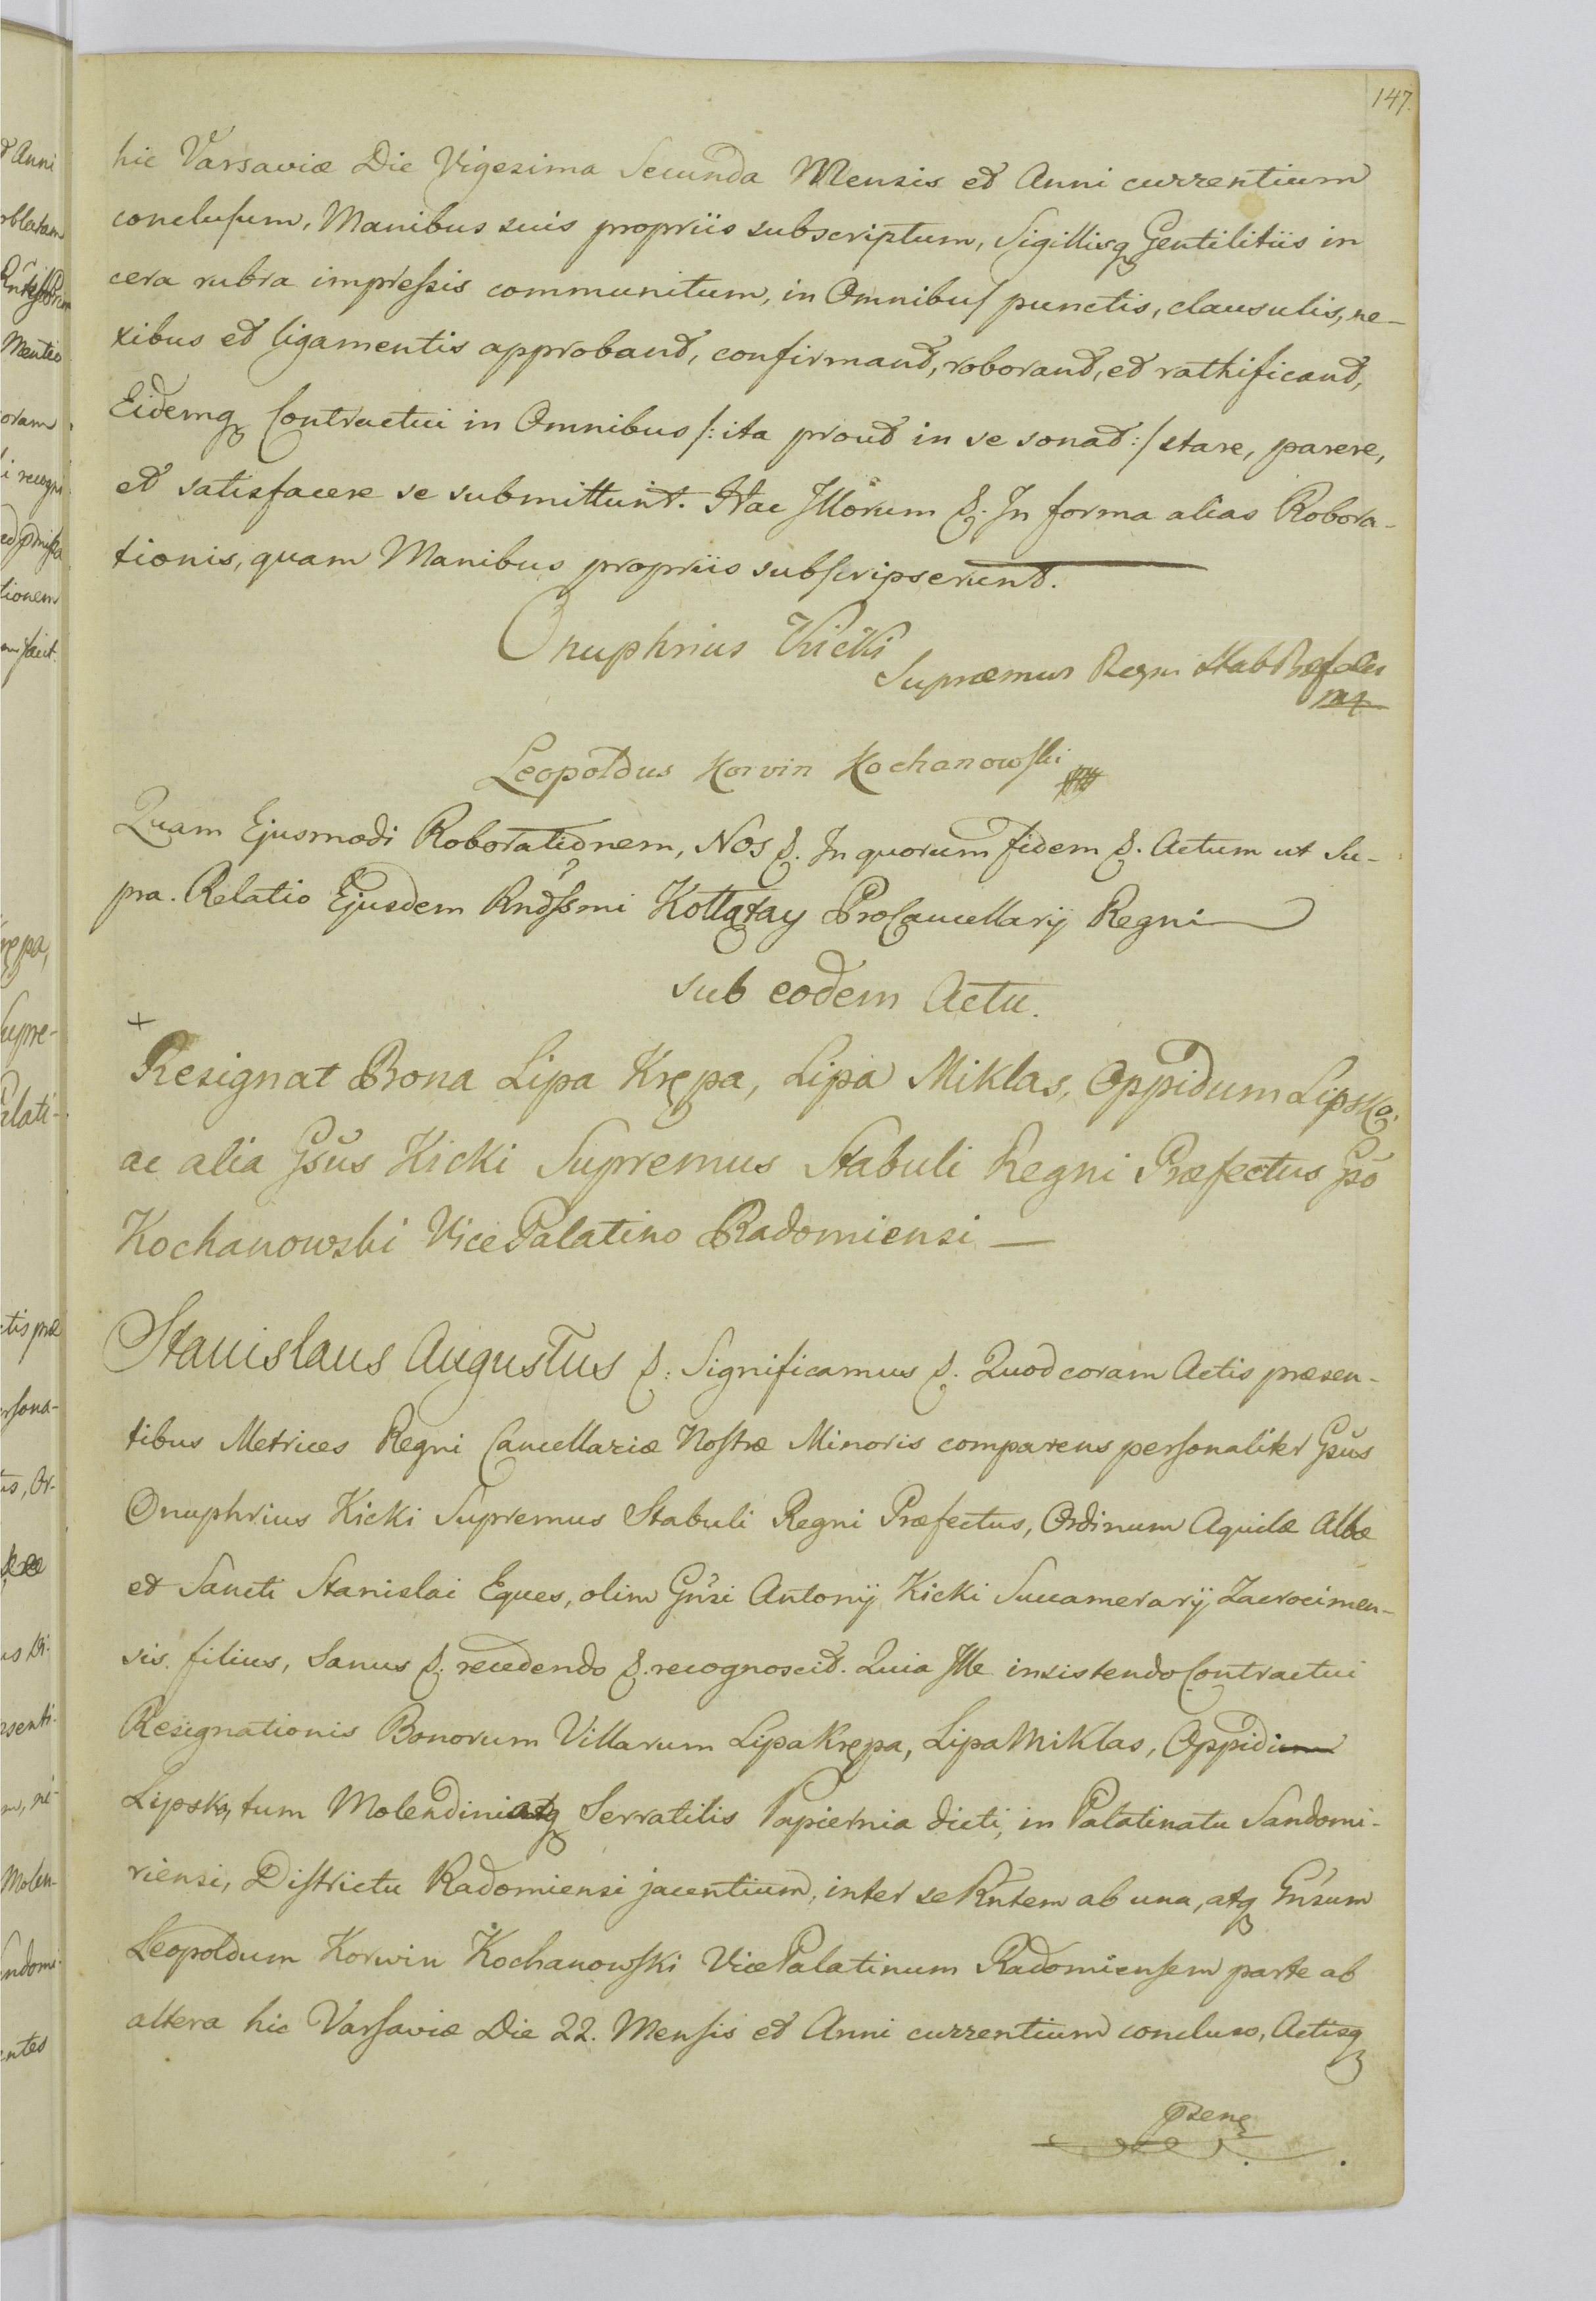 147.
hic Varsaviæ Die Vigesima Secunda Mensis et Anni currentium
conclusum, Manibus suis propriis subscriptum, Sigillisq Gentilitiis in
cera rubra impressis communitum, in Omnibus punctis, clausulis, ne-
xibus et ligamentis approbant, confirmant, roborant, et rathificant,
Eidemq Contractui in Omnibus /: ita prout in se sonat :/ stare, parere,
et satisfacere se submittunt. Hac Illorum &. In forma alias Robora-
tionis, quam Manibus propriis subscripserunt.
Onuphrius Kicki
Supræmus Regni Stab Præfectus
mp
Leopoldus Korvin Kochanowski
Quam Ejusmodi Roborationem, Nos &. In quorum fidem &. Actum ut Su-
pra. Relatio Ejusdem Rndssmi Kołłątay ProCancellarij Regni
sub eodem Actu.
+
Resignat Bona Lipa Krępa, Lipa Miklas, Oppidum Lipsko,
ac alia Gsus Kicki Supremus Stabuli Regni Præfectus Gso
Kochanowski Vice Palatino Radomiensi —
Stanislaus Augustus &: Significamus &. Quod coram Actis præsen-
tibus Metrices Regni Cancellariæ Nostræ Minoris comparens personaliter Gsus
Onuphrius Kicki Supremus Stabuli Regni Præfectus, Ordinum Aquilæ Albæ
et Sancti Stanislai Eques, olim Gnsi Antonij Kicki Succamerarij Zacrocimen-
sis filius, Sanus &. recedendo &. recognoscit. Quia Ille insistendo Contractui
Resignationis Bonorum Villarum Lipa Krępa, Lipa Miklas, Oppidi
Lipsko, tum Molendini atq Serratilis Papiernia dicti, in Palatinatu Sandomi-
riensi, Districtu Radomiensi jacentium, inter se Rntem ab una, atq Gnsum
Leopoldum Korwin Kochanowski Vice Palatinum Radomiensem parte ab
altera hic Varsaviæ Die 22. Mensis et Anni currentium concluso, Actisq
psenq